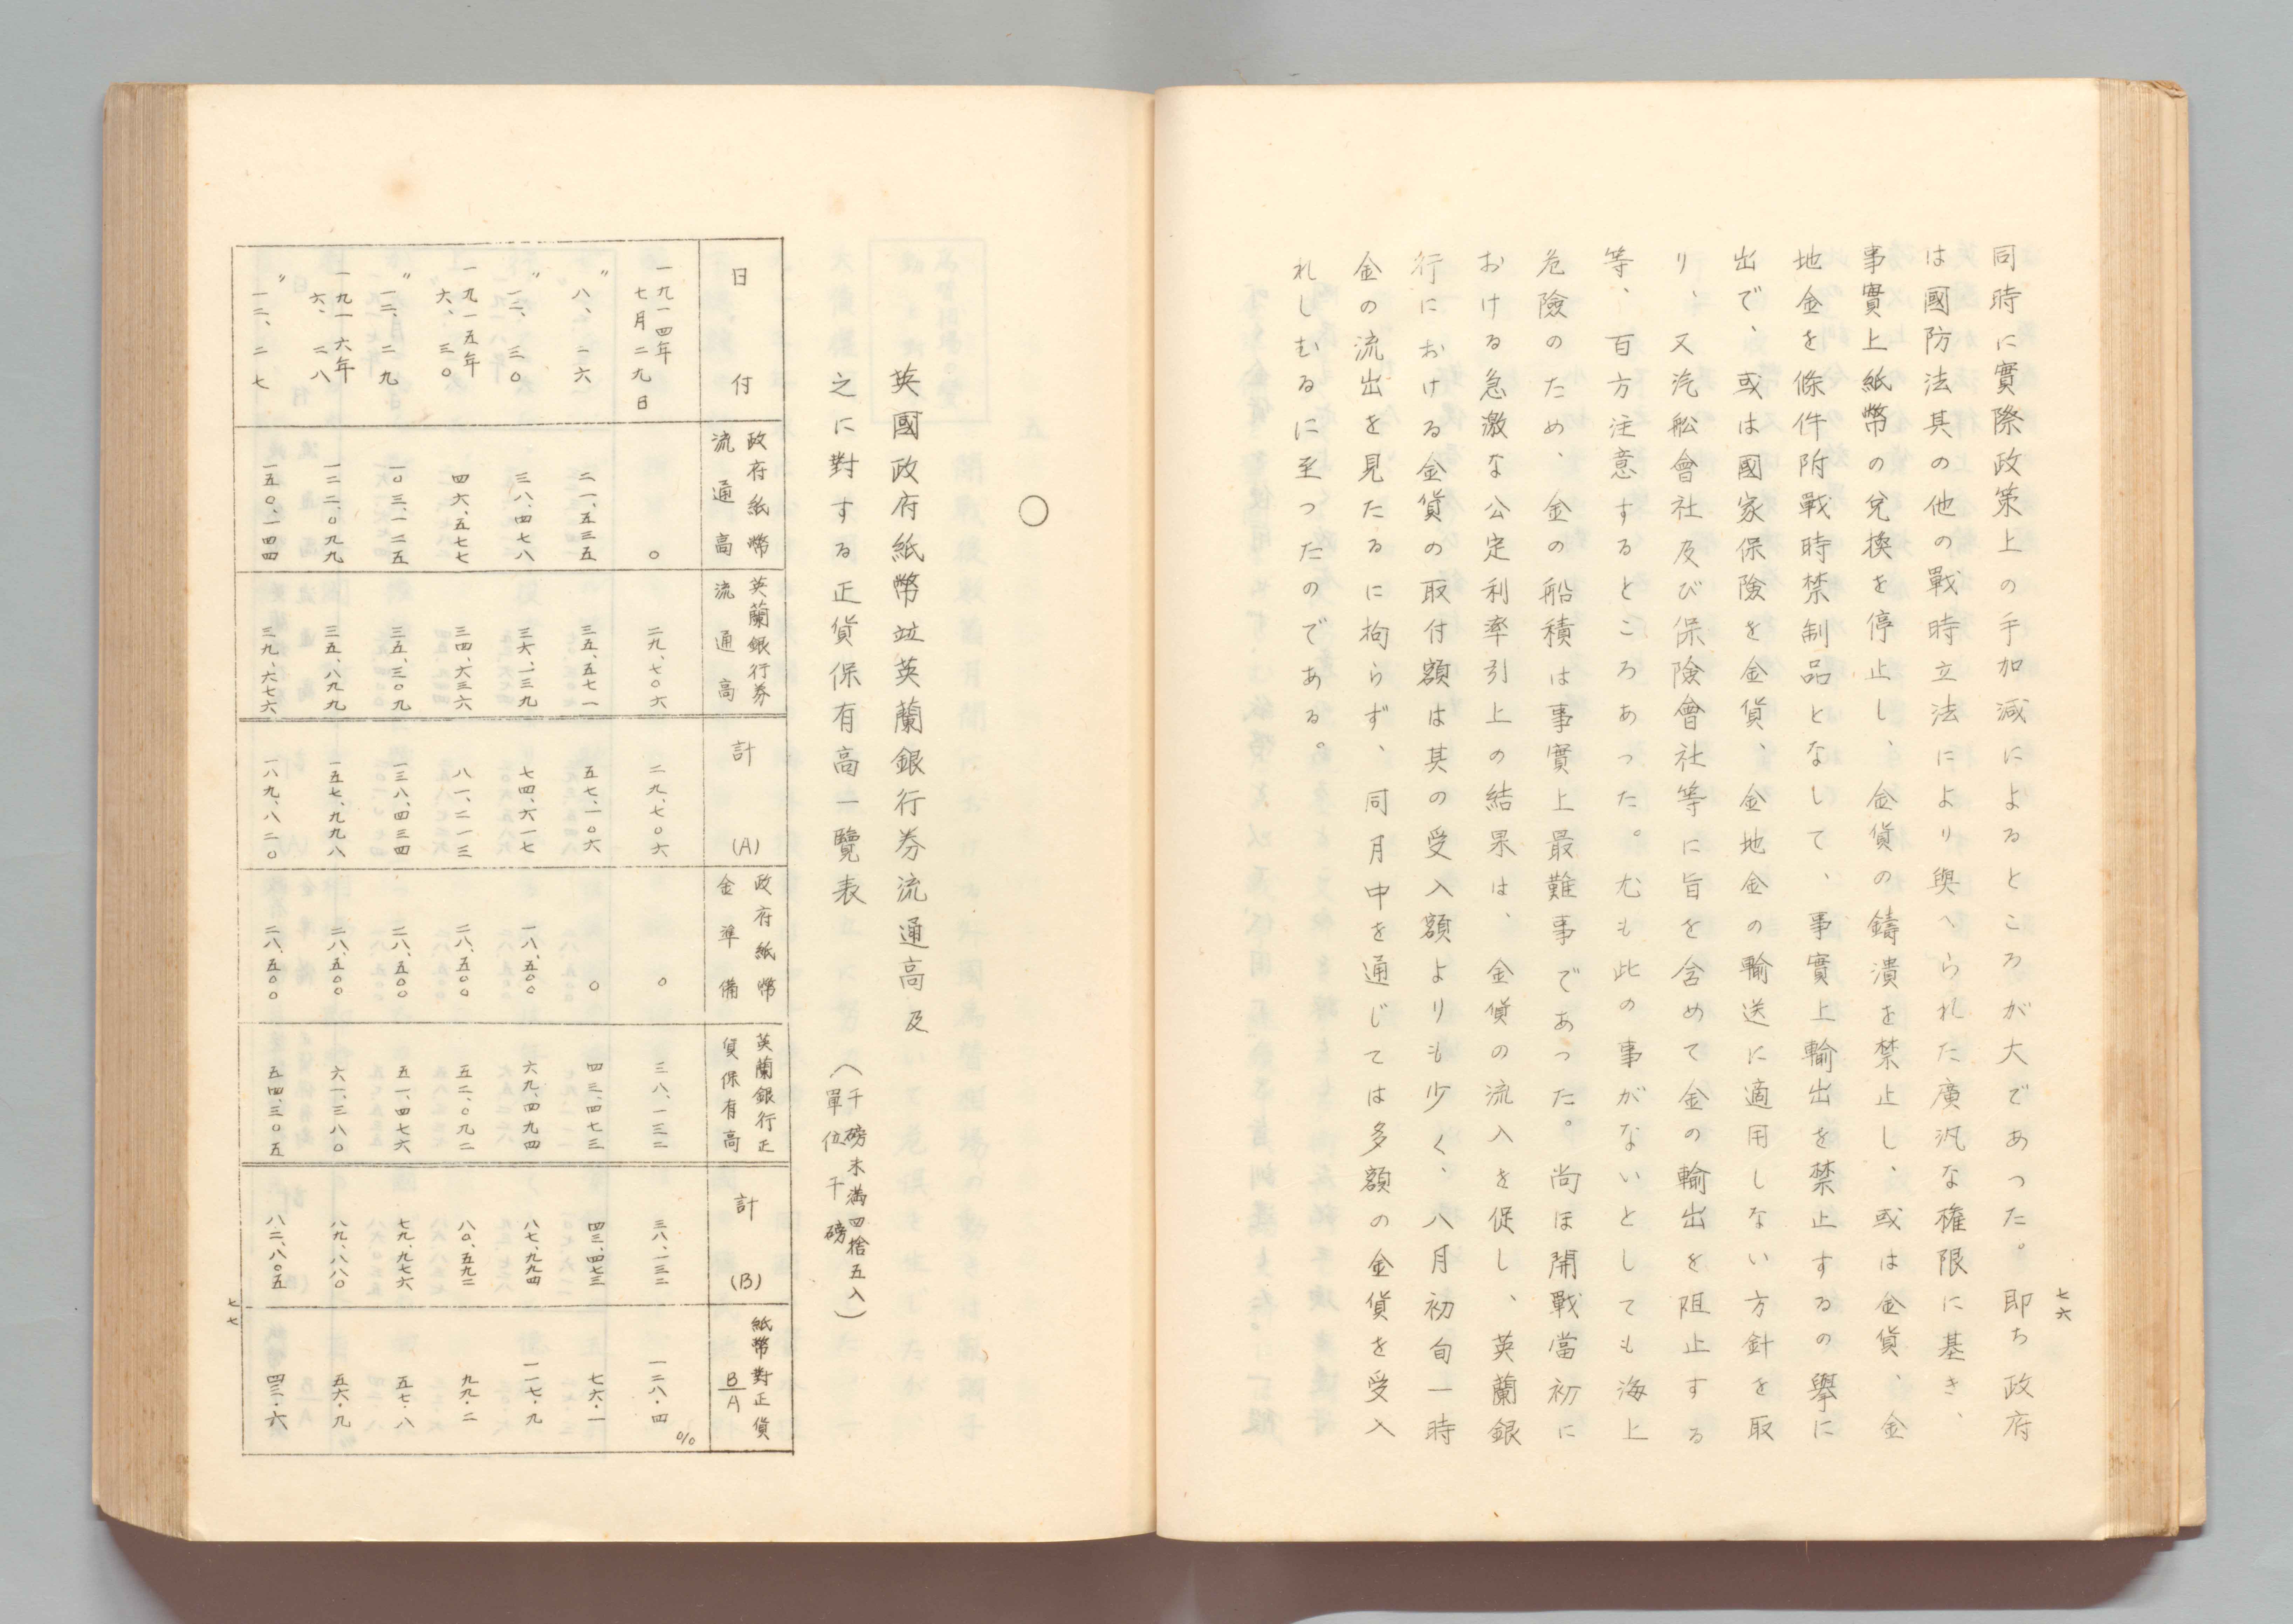 七六
同時に實際政策上の手加減によるところが大であった。即ち政府
は國防法其の他の戰時立法により與へられた廣汎な權限に基き、
事實上紙幣の兌換を停止し、金貨の鑄潰を禁止し、或は金貨、金
地金を條件附戰時禁制品となして、事實上輸出を禁止するの擧に
出で、或は國家保險を金貨、金地金の輸送に適用しない方針を取
り、又汽船會社及び保險會社等に旨を含めて金の輸出を阻止する
等、百方注意するところあった。尤も此の事がないとしても海上
危險のため、金の船積は事實上最難事であった。尚ほ開戰當初に
おける急激な公定利率引上の結果は、金貨の流入を促し、英蘭銀
行における金貨の取付額は其の受入額よりも少く、八月初旬一時
金の流出を見たるに拘らず、同月中を通じては多額の金貨を受入
れしむるに至つたのである。
○
英國政府紙幣竝英蘭銀行券流通高及
之に對する正貨保有高一覽表
（千磅未滿四捨五入
單位千磅）
日付 政府紙幣流通高 英蘭銀行券流通高 計(A) 政府紙幣金準備 英蘭銀行正貨保有高 計(B) 紙幣對正貨B/A
一九一四年七月二九日 〇 二九、七〇六 二九、七〇六 〇 三八、一三二 三八、一三二 一二八・四%
〃八、二六 二一、五三五 三五、五七一 五七、一〇六 〇 四三、四七三 四三、四七三 七六・一
〃一二、三〇 三八、四七八 三六、一三九 七四、六一七 一八、五〇〇 六九、四九四 八七、九九四 一一七・九
一九一五年六、三〇 四六、五七七 三四、六三六 八一、二一三 二八、五〇〇 五二、〇九二 八〇、五九二 九九・二
〃一二、二九 一〇三、一二五 三五、三〇九 一三八、四三四 二八、五〇〇 五一、四七六 七九、九七六 五七・八
一九一六年六、二八 一二二、〇九九 三五、八九九 一五七、九九八 二八、五〇〇 六一、三八〇 八九、八八〇 五六・九
〃一二、二七 一五〇、一四四 三九、六七六 一八九、八二〇 二八、五〇〇 五四、三〇五 八二、八〇五 四三・六
七七